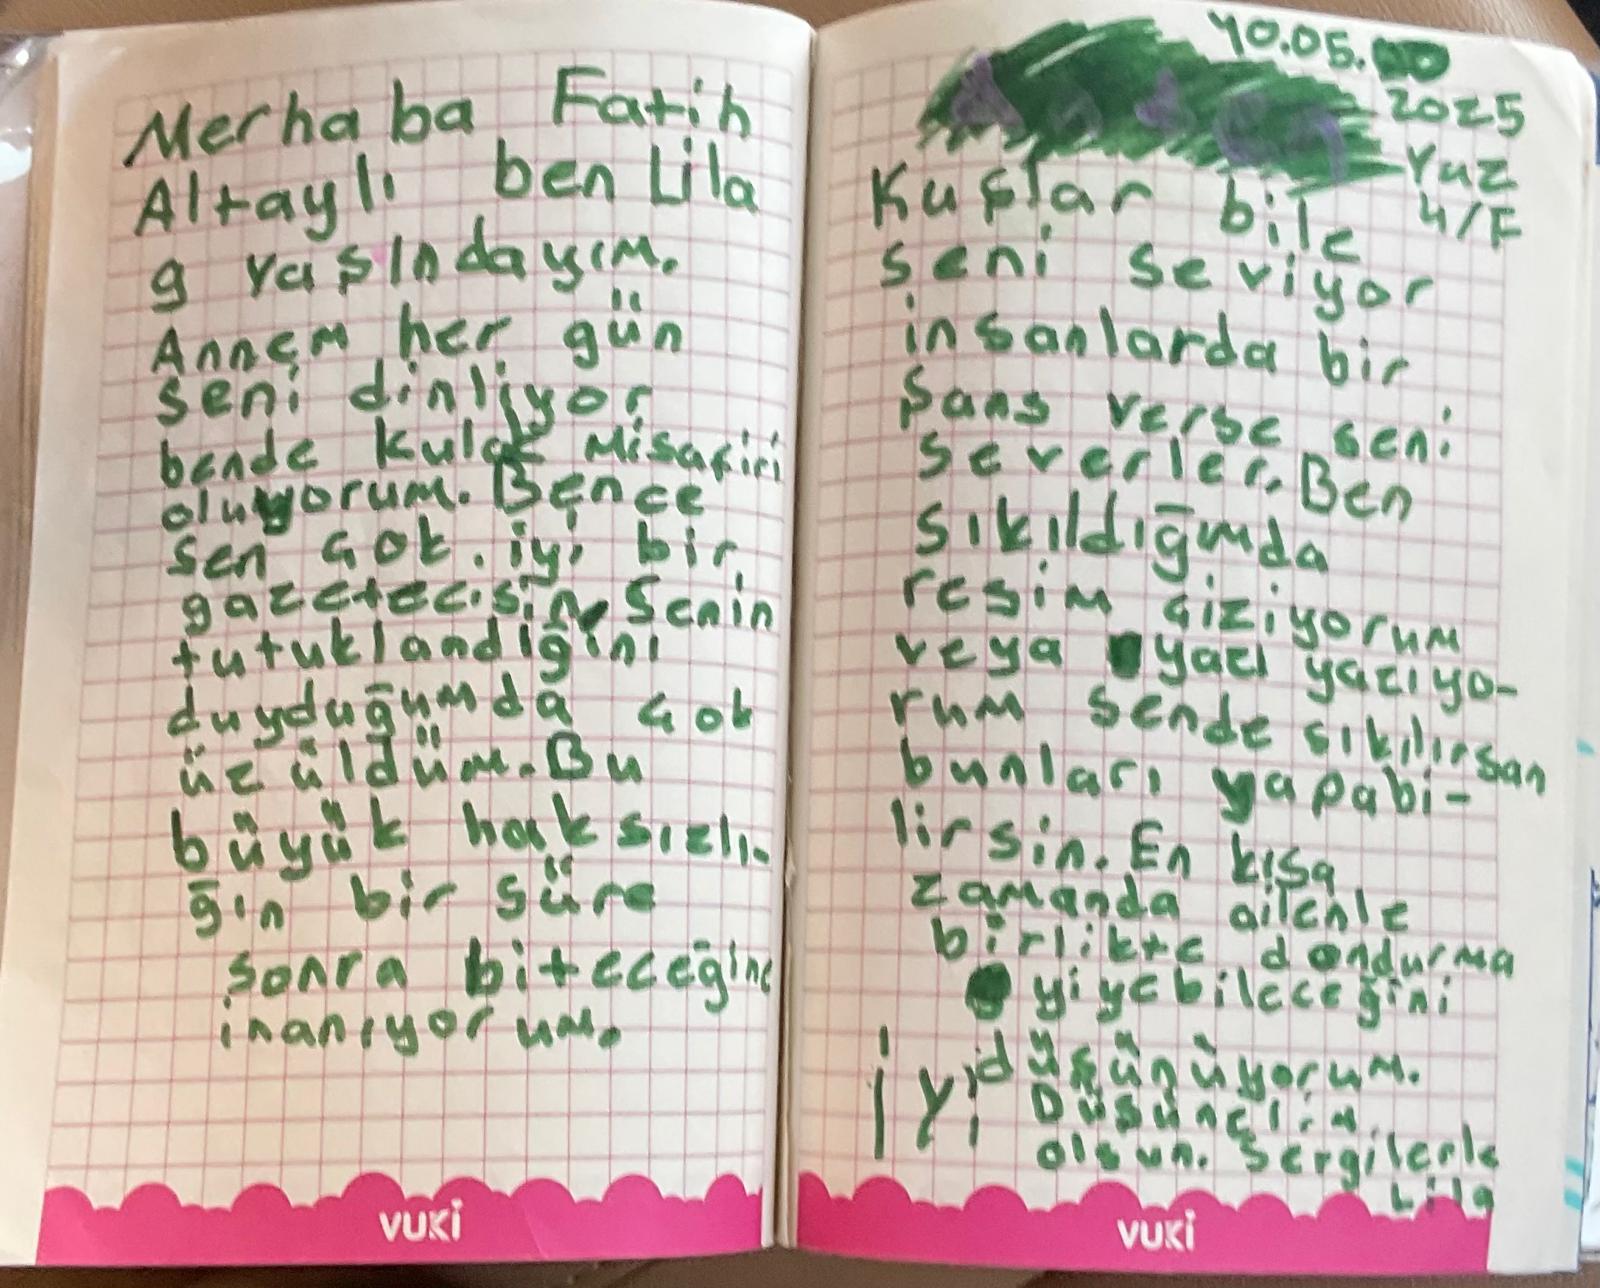 Merhaba Fatih
Altaylı ben Lila
9 yaşındayım.
Annem her gün
seni dinliyor
bende kulak misafiri
oluyorum. Bence
sen çok iyi bir
gazetecisin. Senin
tutuklandiğini
duyduğumda çok
üzüldüm. Bu
büyük haksızlı-
ğın bir süre
sonra biteceğine
inanıyorum.
VUKi
10.05.
2025
Yuz
4/F
Kuşlar bile
seni seviyor
insanlarda bir
şans verse seni
severler. Ben
sıkıldığımda
resim çiziyorum
veya yazı yazıyo-
rum sende sıkılırsan
bunları yapabi-
lirsin. En kısa
zamanda ailenle
birlikte dondurma
yiyebileceğini
düşünüyorum.
iyi DüşüncLin
olsun. Sergilerle
Lila
VUKi